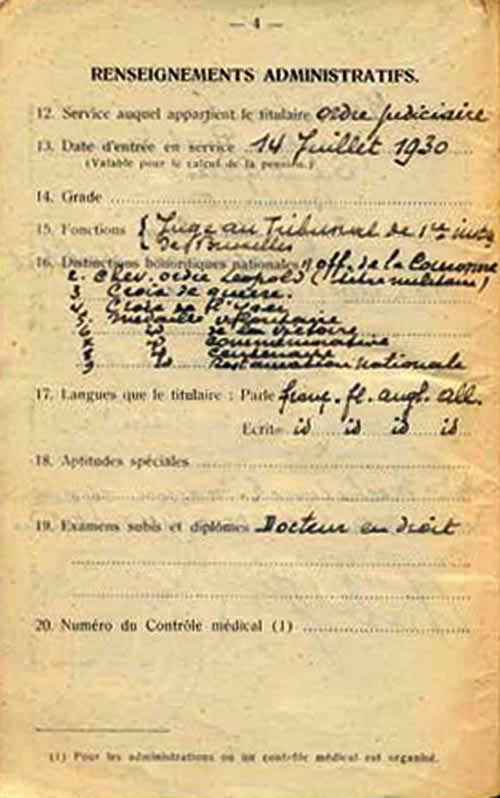 — 4 —
RENSEIGNEMENTS ADMINISTRATIFS.
12. Service auquel appartient le titulaire ordre judiciaire
13. Date d'entrée en service 14 Juillet 1930
(Valable pour le calcul de la pension.)
14. Grade
15. Fonctions { Juge au Tribunal de 1re inst.
de Bruxelles
16. Distinctions honorifiques nationales 1) off. de la Couronne
2. Chev. ordre Léopold (titre militaire)
3. Croix de guerre.
4. Croix de l'Yser
5. Médaille Volontaire
6 id de la Victoire
id Commémorative
id Centenaire
9 id Restauration nationale
17. Langues que le titulaire : Parle franç. fl. angl. all.
Ecrit id id id id
18. Aptitudes spéciales
19. Examens subis et diplômes Docteur en droit
20. Numéro du Contrôle médical (1)
(1) Pour les administrations où un contrôle médical est organisé.